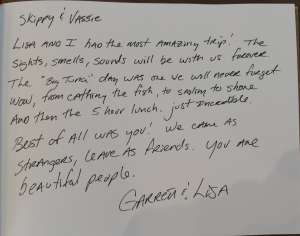 Skippy & Vassie
Lisa and I had the most amazing trip! The
sights, smells, sounds will be with us forever
The "Big Tuna" day was one we will never forget
Wow, from catching the fish, to sailing to shore
And then the 5 hour lunch. just incredible.
Best of all was you! We came as
strangers, leave as friends. You are
beautiful people.
Garren & Lisa